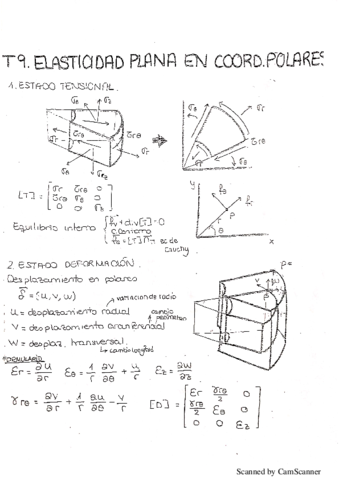 T9. ELASTICIDAD PLANA EN COORD. POLARES
1. ESTADO TENSIONAL.
σθ σz
τrθ
σr
σz
τrθ
σr
σθ
[T] = [σr τrθ 0
τrθ σθ 0
0 0 σz]
y
P
r
θ
x
Equilibrio interno
contorno
ec de Cauchy
2. ESTADO DEFORMACIÓN.
Desplazamiento en polares
δ = (u, v, w)
variación de radio
u = desplazamiento radial
cambio
v = desplazamiento circunferencial
w = desplaz. transversal.
εr = ∂u/∂r εθ = 1/r ∂v/∂θ + u/r εz = ∂w/∂z
γrθ = ∂v/∂r + 1/r ∂u/∂θ - v/r
[D] = [εr γrθ/2 0
γrθ/2 εθ 0
0 0 εz]
Scanned by CamScanner